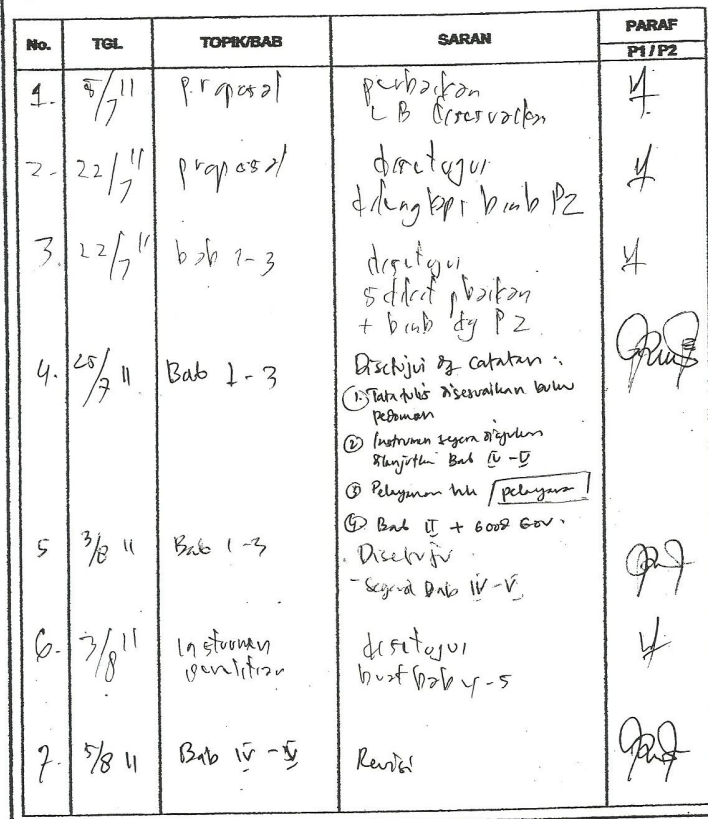 No. TGL TOPIK/BAB SARAN PARAF
P1 / P2
1. 5/7 11 proposal perbaikan
LB disesuaikan
2. 22/7 11 proposal disetujui
dilengkapi bimb P2
3. 22/7 11 bab 1-3 disetujui
sedikit pbaikan
+ bimb dg P2
4. 25/7 11 Bab 1-3 Disetujui dg catatan :
① Tata tulis disesuaikan buku
pedoman
② Instrumen segera diajukan
dilanjutkan Bab IV - V
③ Pelayanan pelayanan
④ Bab II + Good Gov.
5 3/8 11 Bab 1-3 Disetujui
- Segera Bab IV - V
6. 3/8 11 Instrumen disetujui
penelitian buat bab 4-5
7. 5/8 11 Bab IV - V Revisi